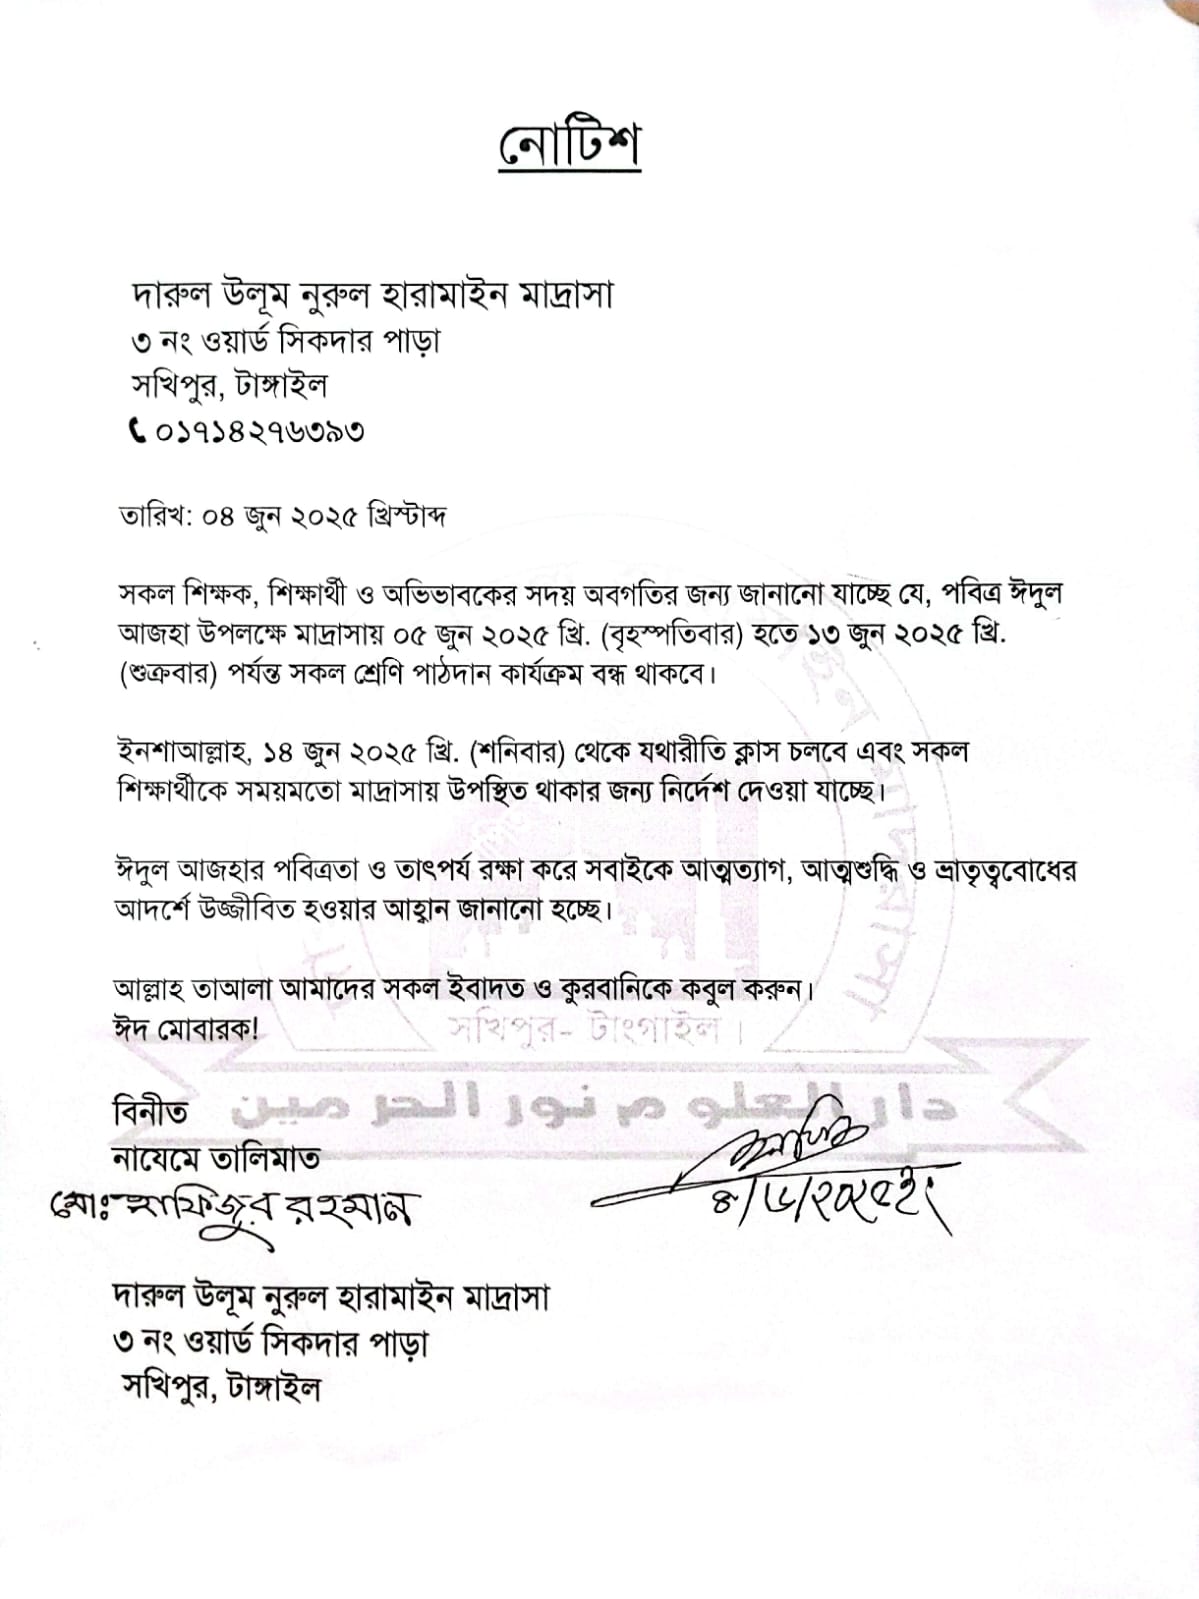 নোটিশ
দারুল উলূম নুরুল হারামাইন মাদ্রাসা
৩ নং ওয়ার্ড সিকদার পাড়া
সখিপুর, টাঙ্গাইল
📞০১৭১৪২৭৬৩৯৩
তারিখ: ০৪ জুন ২০২৫ খ্রিস্টাব্দ
সকল শিক্ষক, শিক্ষার্থী ও অভিভাবকের সদয় অবগতির জন্য জানানো যাচ্ছে যে, পবিত্র ঈদুল
আজহা উপলক্ষে মাদ্রাসায় ০৫ জুন ২০২৫ খ্রি. (বৃহস্পতিবার) হতে ১৩ জুন ২০২৫ খ্রি.
(শুক্রবার) পর্যন্ত সকল শ্রেণি পাঠদান কার্যক্রম বন্ধ থাকবে।
ইনশাআল্লাহ, ১৪ জুন ২০২৫ খ্রি. (শনিবার) থেকে যথারীতি ক্লাস চলবে এবং সকল
শিক্ষার্থীকে সময়মতো মাদ্রাসায় উপস্থিত থাকার জন্য নির্দেশ দেওয়া যাচ্ছে।
ঈদুল আজহার পবিত্রতা ও তাৎপর্য রক্ষা করে সবাইকে আত্মত্যাগ, আত্মশুদ্ধি ও ভ্রাতৃত্ববোধের
আদর্শে উজ্জীবিত হওয়ার আহ্বান জানানো হচ্ছে।
আল্লাহ তাআলা আমাদের সকল ইবাদত ও কুরবানিকে কবুল করুন।
ঈদ মোবারক!
সখিপুর- টাংগাইল।
دار العلوم نور الحرمين
বিনীত
নাযেমে তালিমাত
মোঃ হাফিজুর রহমান
৪/৬/২০২৫ইং
দারুল উলূম নুরুল হারামাইন মাদ্রাসা
৩ নং ওয়ার্ড সিকদার পাড়া
সখিপুর, টাঙ্গাইল